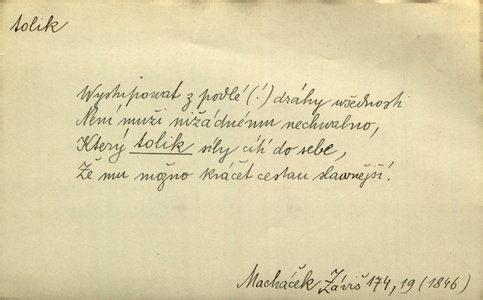 tolik
Wystupowat z podlé (!) dráhy wšednosti
Není muži nižádnému nechwalno,
Který tolik síly cítí do sebe,
Že mu možno kráčet cestau slawnější.
Macháček Záviš 174, 19 (1846)